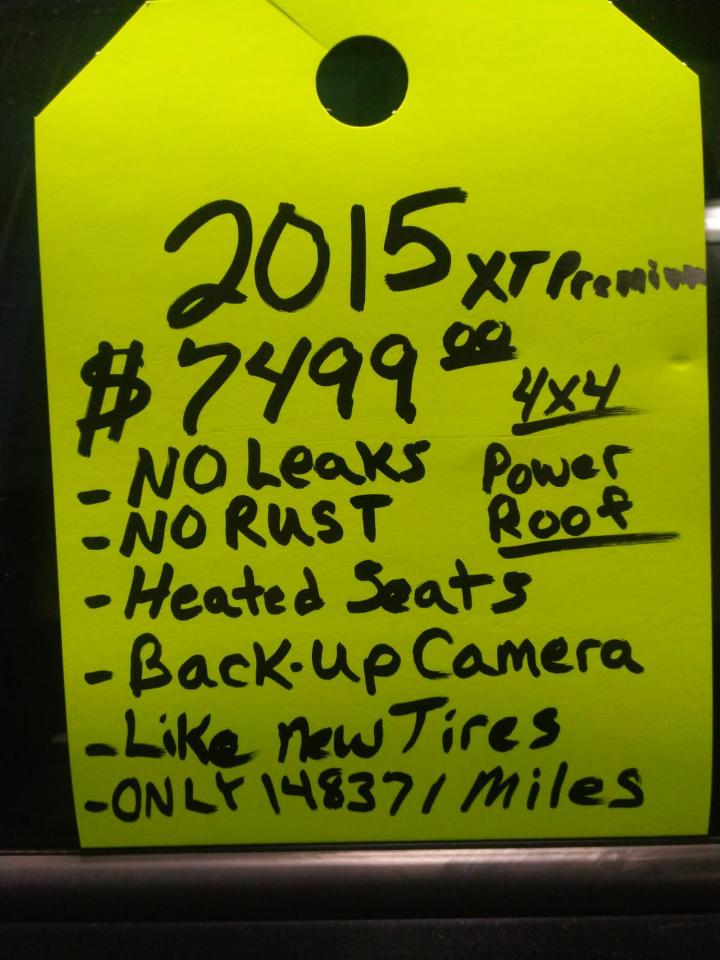 2015 XT Premium
$7499.00
4x4
- NO Leaks
- NO RUST
Power
Roof
- Heated Seats
- Back-up Camera
- Like new Tires
- ONLY 148371 Miles